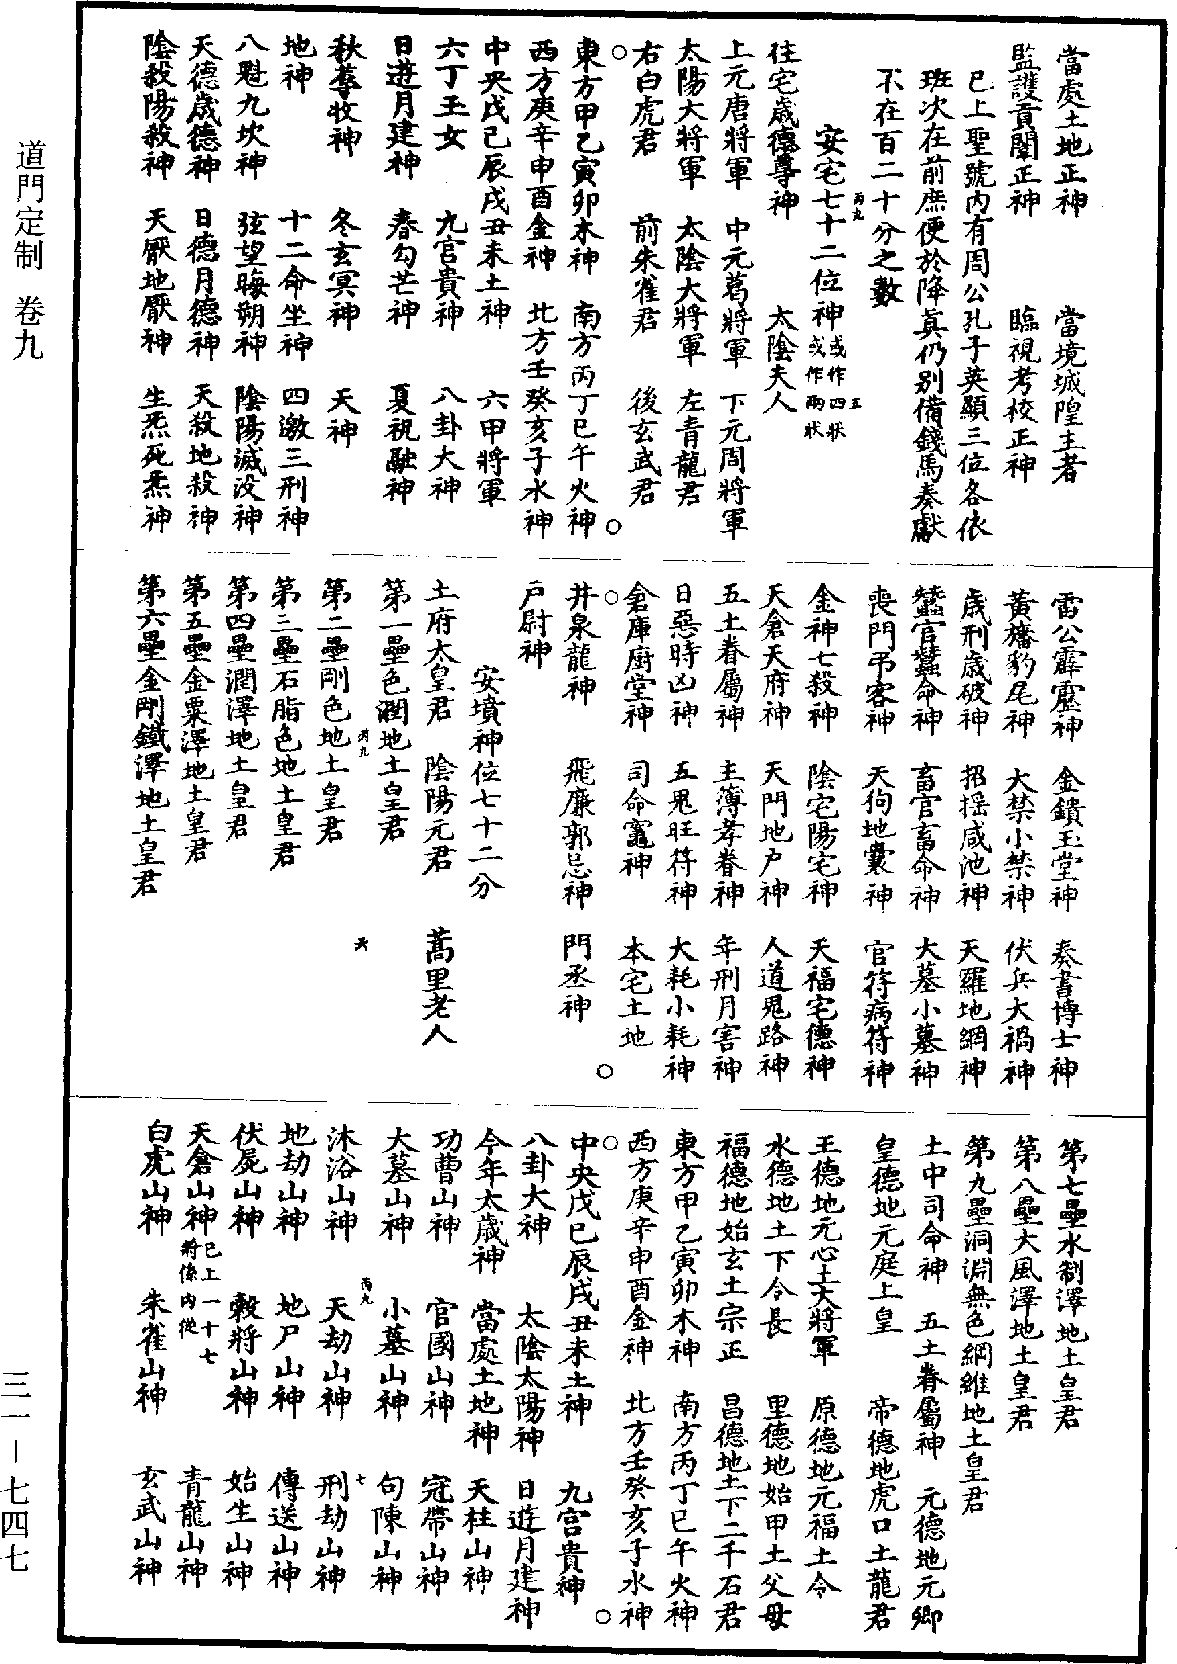 當處土地正神　當境城隍主者
監護貢闈正神　臨視考校正神
已上聖號內有周公孔子英顯三位各依
班次在前庶便於降真仍別備錢馬奏獻
不在百二十分之數
丙九　五
安宅七十二位神或作四狀或作兩狀
住宅歲德尊神　太陰夫人
上元唐將軍　中元葛將軍　下元周將軍
太陽大將軍　太陰大將軍　左青龍君
右白虎君　前朱雀君　後玄武君
○東方甲乙寅卯木神　南方丙丁巳午火神○
西方庚辛申酉金神　北方壬癸亥子水神
中央戊己辰戌丑未土神　六甲將軍
六丁玉女　九宮貴神　八卦大神
日遊月建神　春勾芒神　夏祝融神
秋蓐牧神　冬玄冥神　天神
地神　十二命坐神　四激三刑神
八魁九坎神　弦望晦朔神　陰陽滅沒神
天德歲德神　日德月德神　天殺地殺神
陰殺陽殺神　天厭地厭神　生炁死炁神
雷公霹靂神　金鐀玉堂神　奏書博士神
黃旛豹尾神　大禁小禁神　伏兵大禍神
歲刑歲破神　招搖咸池神　天羅地網神
蠶官蠶命神　畜官畜命神　大墓小墓神
喪門弔客神　天狗地囊神　官符病符神
金神七殺神　陰宅陽宅神　天福宅德神
天倉天府神　天門地戶神　人道鬼路神
五土眷屬神　主簿孝眷神　年刑月害神
日惡時凶神　五鬼旺符神　大耗小耗神
倉庫廚堂神　司命竈神　本宅土地
○井泉龍神　飛廉郭忌神　門丞神○
戶尉神
安墳神位七十二分
土府太皇君　陰陽元君　蒿里老人
第一壘色潤地土皇君
丙九　六
第二壘剛色地土皇君
第三壘石脂色地土皇君
第四壘潤澤地土皇君
第五壘金粟澤地土皇君
第六壘金剛鐵澤地土皇君
第七壘水制澤地土皇君
第八壘大風澤地土皇君
第九壘洞淵無色綱維地土皇君
土中司命神　五土眷屬神　元德地元卿
皇德地元庭上皇　帝德地虎口土龍君
王德地元心土大將軍　原德地元福土令
水德地土下令長　里德地始甲土父母
福德地始玄土宗正　昌德地土下二千石君
東方甲乙寅卯木神　南方丙丁巳午火神
西方庚辛申酉金神　北方壬癸亥子水神
○中央戊己辰戌丑未土神　九宮貴神○
八卦大神　太陰太陽神　日遊月建神
今年太歲神　當處土地神　天柱山神
功曹山神　官國山神　冠帶山神
大墓山神　小墓山神　句陳山神
丙九　七
沐浴山神　天劫山神　刑劫山神
地劫山神　地尸山神　傳送山神
伏屍山神　穀將山神　始生山神
天倉山神已上一十七將係內從　青龍山神
白虎山神　朱雀山神　玄武山神
道門定制　卷九
三一—七四七